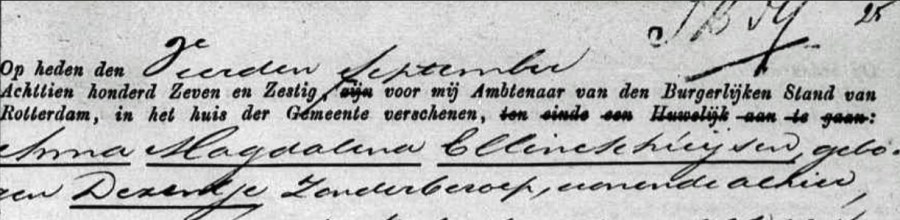 25
Op heden den
September
Achttien honderd Zeven en Zestig, zijn voor mij Ambtenaar van den Burgerlijken Stand van
Rotterdam, in het huis der Gemeente verschenen, ten einde een Huwelijk aan te gaan:
Anna Magdalena, gebo-
ren Dezentje Zonder beroep, wonende alhier,